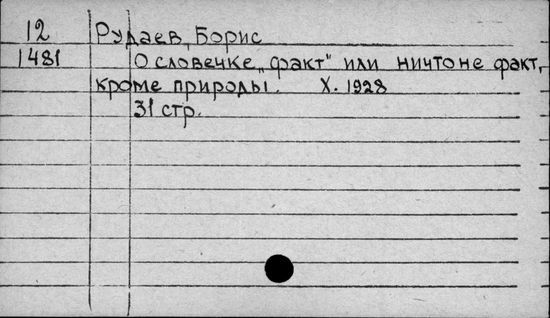 12 Рудаев, Борис
1481 О словечке „факт" или ничто не факт,
кроме природы. X. 1928
31 стр.